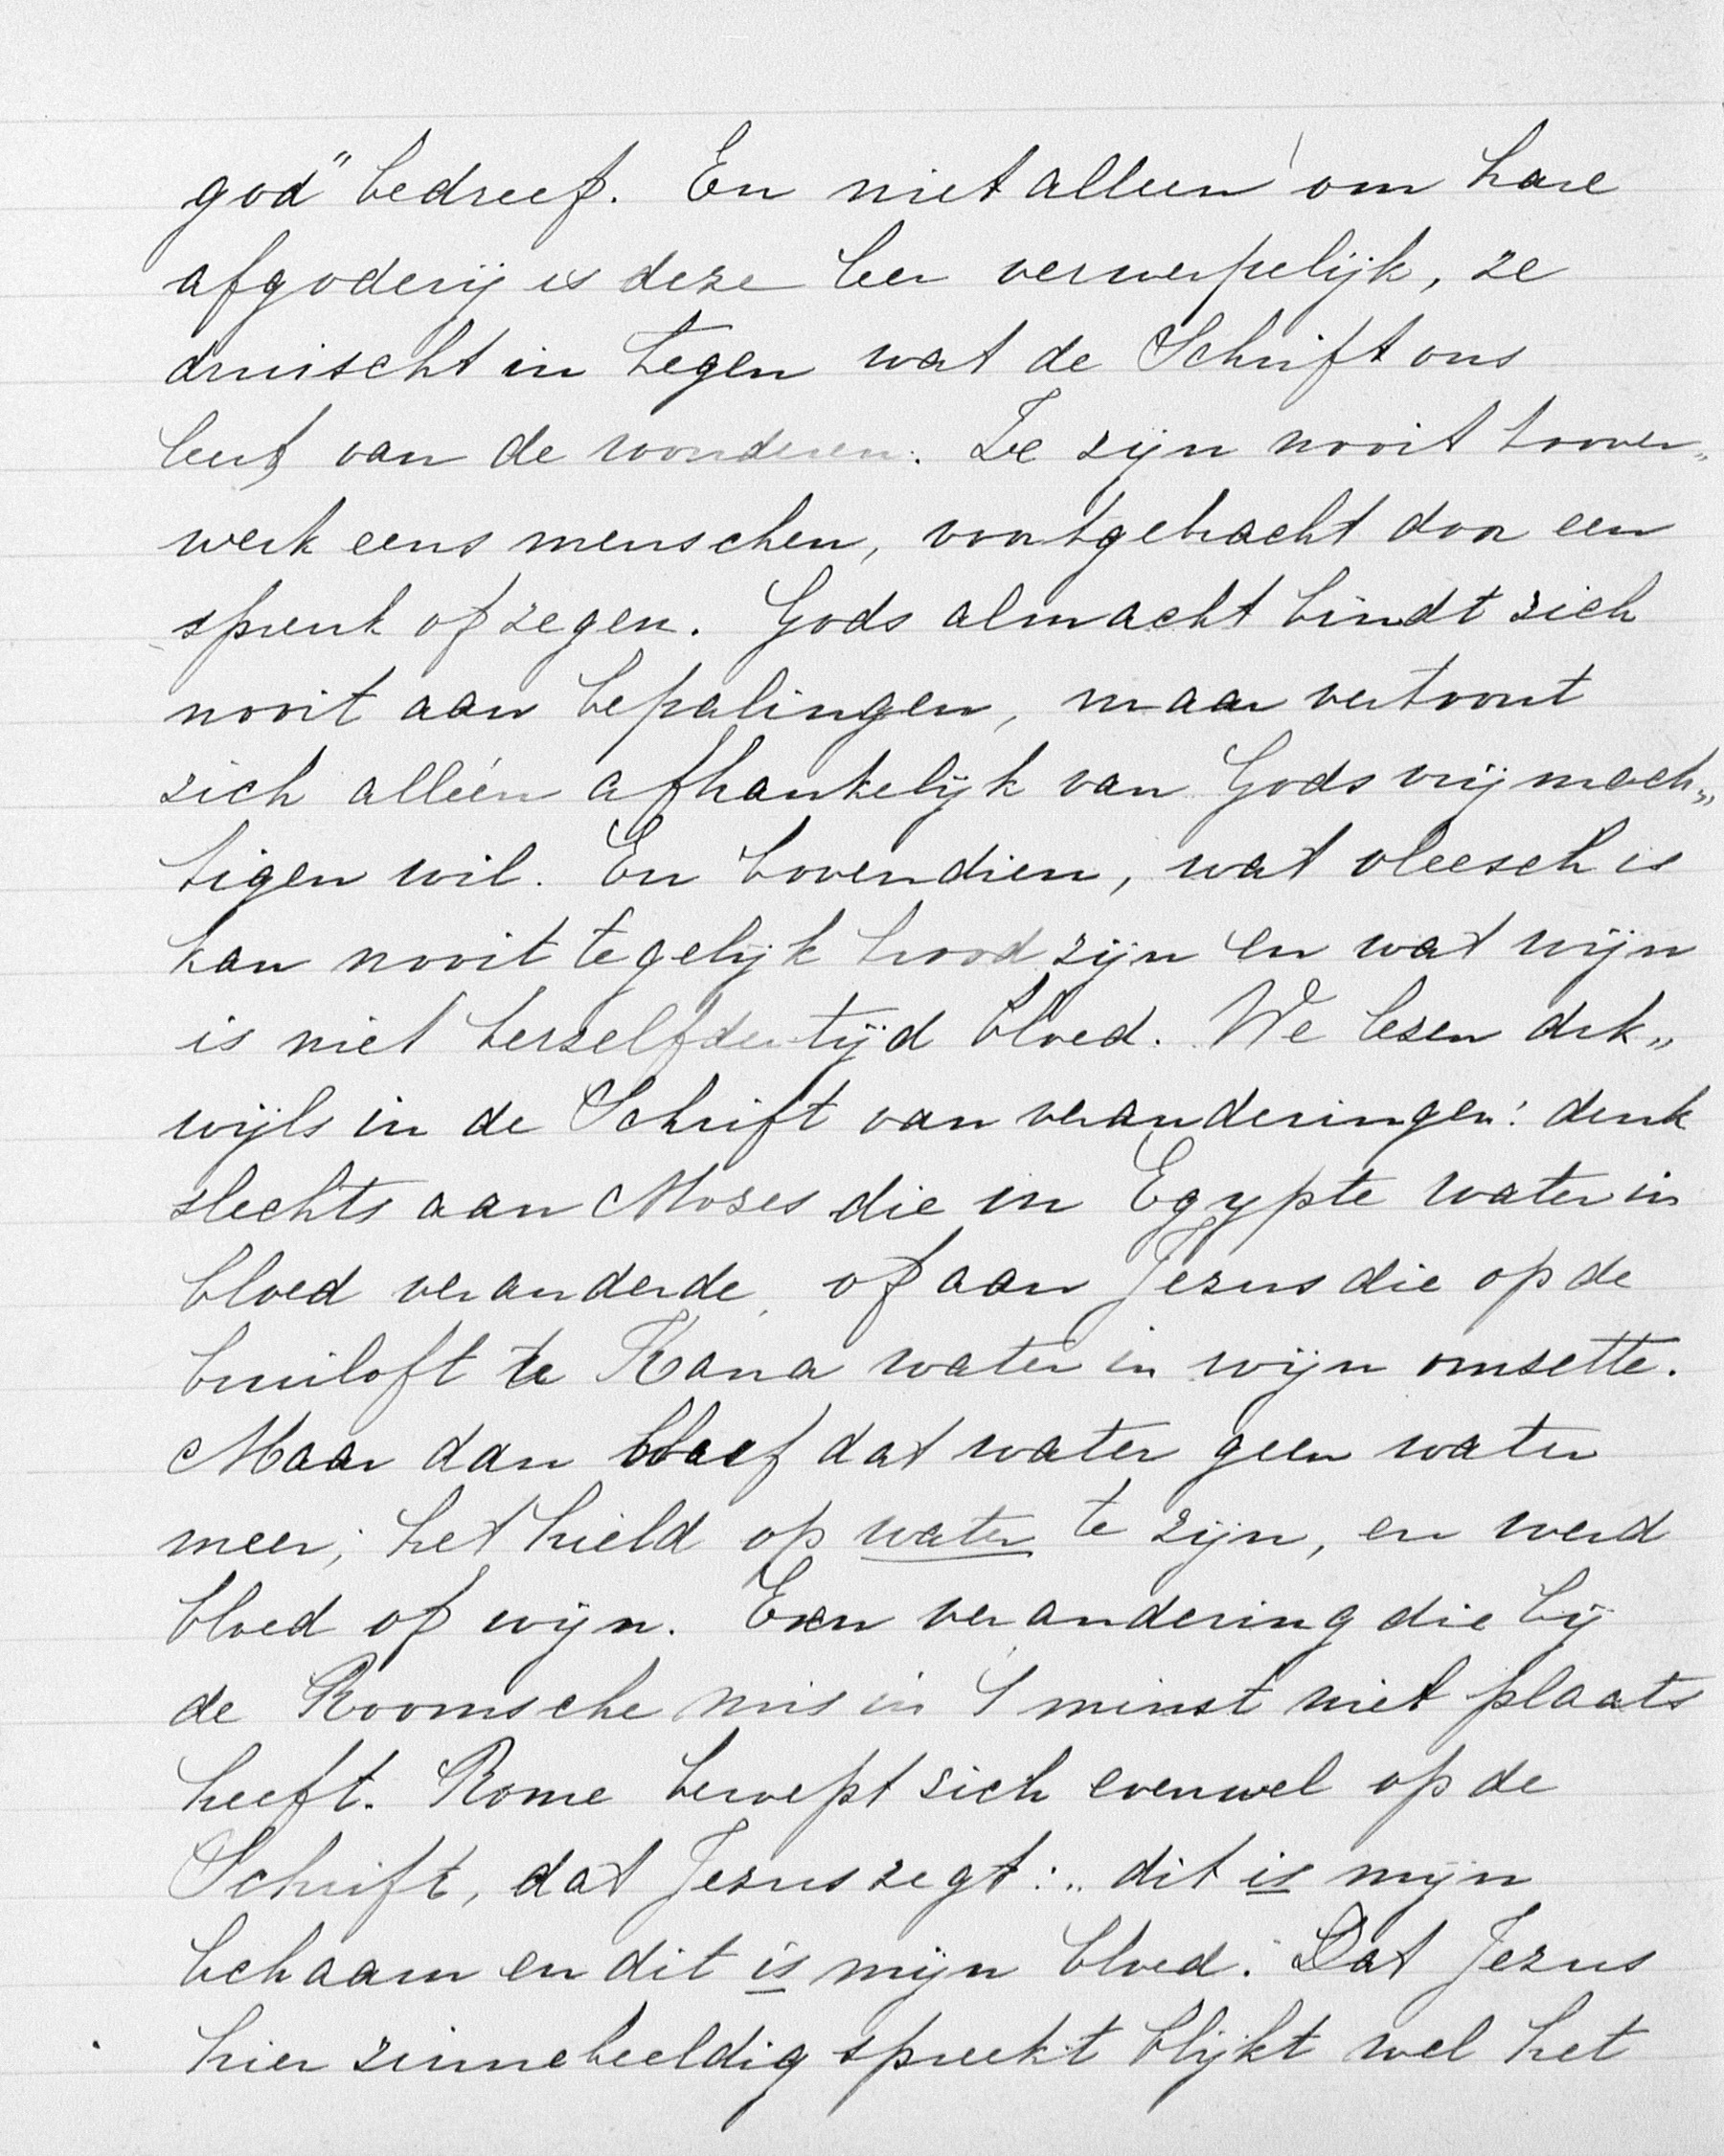 god" bedreef. En niet alleen om hare
afgoderij is deze leer verwerpelijk, ze
druischt in tegen wat de Schrift ons
leert van de wonderen. Ze zijn nooit toover„
werk eens menschen, voortgebracht door een
spreuk of zegen. Gods almacht bindt zich
nooit aan bepalingen, maar vertoont
zich alléén afhankelijk van Gods vrijmach„
tigen wil. En bovendien, wat vleesch is
kan nooit tegelijk brood zijn en wat wijn
is niet terzelfdertijd bloed. We lezen dik„
wijls in de Schrift van veranderingen: denk
slechts aan Mozes die in Egypte water in
bloed veranderde, of aan Jezus die op de
bruiloft te Kana water in wijn omzette.
Maar dan bleef dat water geen water
meer; het hield op water te zijn, en werd
bloed of wijn. Een verandering die bij
de Roomsche mis in 't minst niet plaats
heeft. Rome beroept zich evenwel op de
Schrift, dat Jezus zegt: „dit is mijn
lichaam en dit is mijn bloed." Dat Jezus
hier zinnebeeldig spreekt blijkt wel het